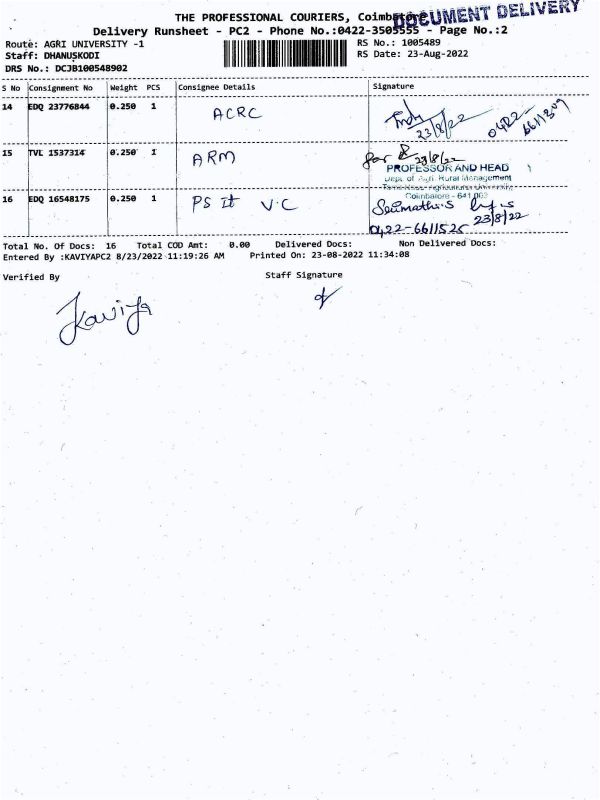 THE PROFESSIONAL COURIERS, Coimbatore
DOCUMENT DELIVERY
Delivery Runsheet - PC2 - Phone No.:0422-3505555 - Page No.:2
Route: AGRI UNIVERSITY -1
RS No.: 1005489
Staff: DHANUSKODI
RS Date: 23-Aug-2022
DRS No.: DCJB100548902
S No Consignment No Weight PCS Consignee Details Signature
14 EDQ 23776844 0.250 1 ACRC
23/8/22 0422-6611309
15 TVL 1537314 0.250 1 ARM
for 23/8/22
PROFESSOR AND HEAD
Dept. of Agri. Rural Management
Tamil Nadu Agricultural University
Coimbatore - 641 003
16 EDQ 16548175 0.250 1 PS to V.C
23/8/22
0422-6611525
Total No. Of Docs: 16 Total COD Amt: 0.00 Delivered Docs: Non Delivered Docs:
Entered By :KAVIYAPC2 8/23/2022 11:19:26 AM Printed On: 23-08-2022 11:34:08
Verified By Staff Signature
Kaviya